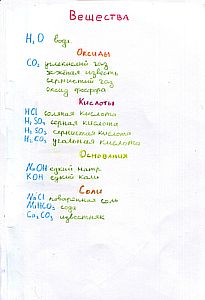 Вещества
H₂O вода
Оксиды
CO₂ углекислый газ
жжёная известь
сернистый газ
оксид фосфора
Кислоты
HCl соляная кислота
H₂SO₄ серная кислота
H₂SO₃ сернистая кислота
H₂CO₃ угольная кислота
Основания
NaOH едкий натр
KOH едкий кали
Соли
NaCl поваренная соль
NaHCO₃ сода
CaCO₃ известняк